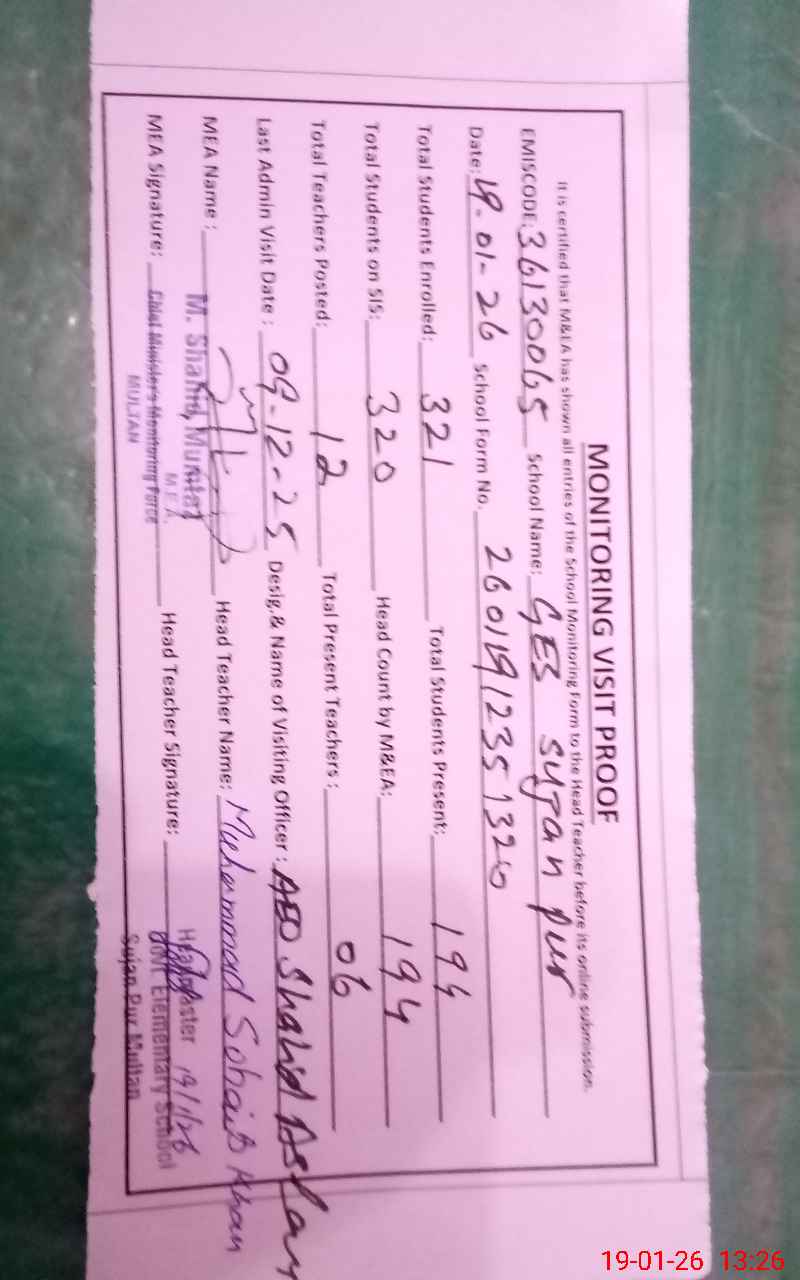 MONITORING VISIT PROOF
It is certified that M&EA has shown all entries of the School Monitoring Form to the Head Teacher before its online submission.
EMISCODE: 36130065 School Name: GES Sujan pur
Date: 19-01-26 School Form No. 2601191235 1320
Total Students Enrolled: 321 Total Students Present: 194
Total Students on SIS: 320 Head Count by M&EA: 194
Total Teachers Posted: 12 Total Present Teachers : 06
Last Admin Visit Date : 09-12-25 Desig.& Name of Visiting Officer : AEO Shahid Aslam
MEA Name : M. Shahid Mumtaz Head Teacher Name: Muhammad Sohaib Khan
M.E.A.
MEA Signature: Chief Minister's Monitoring Force Head Teacher Signature:
MULTAN
Headmaster 19/1/26
Govt. Elementary School
Sujan Pur Multan
19-01-26 13:26